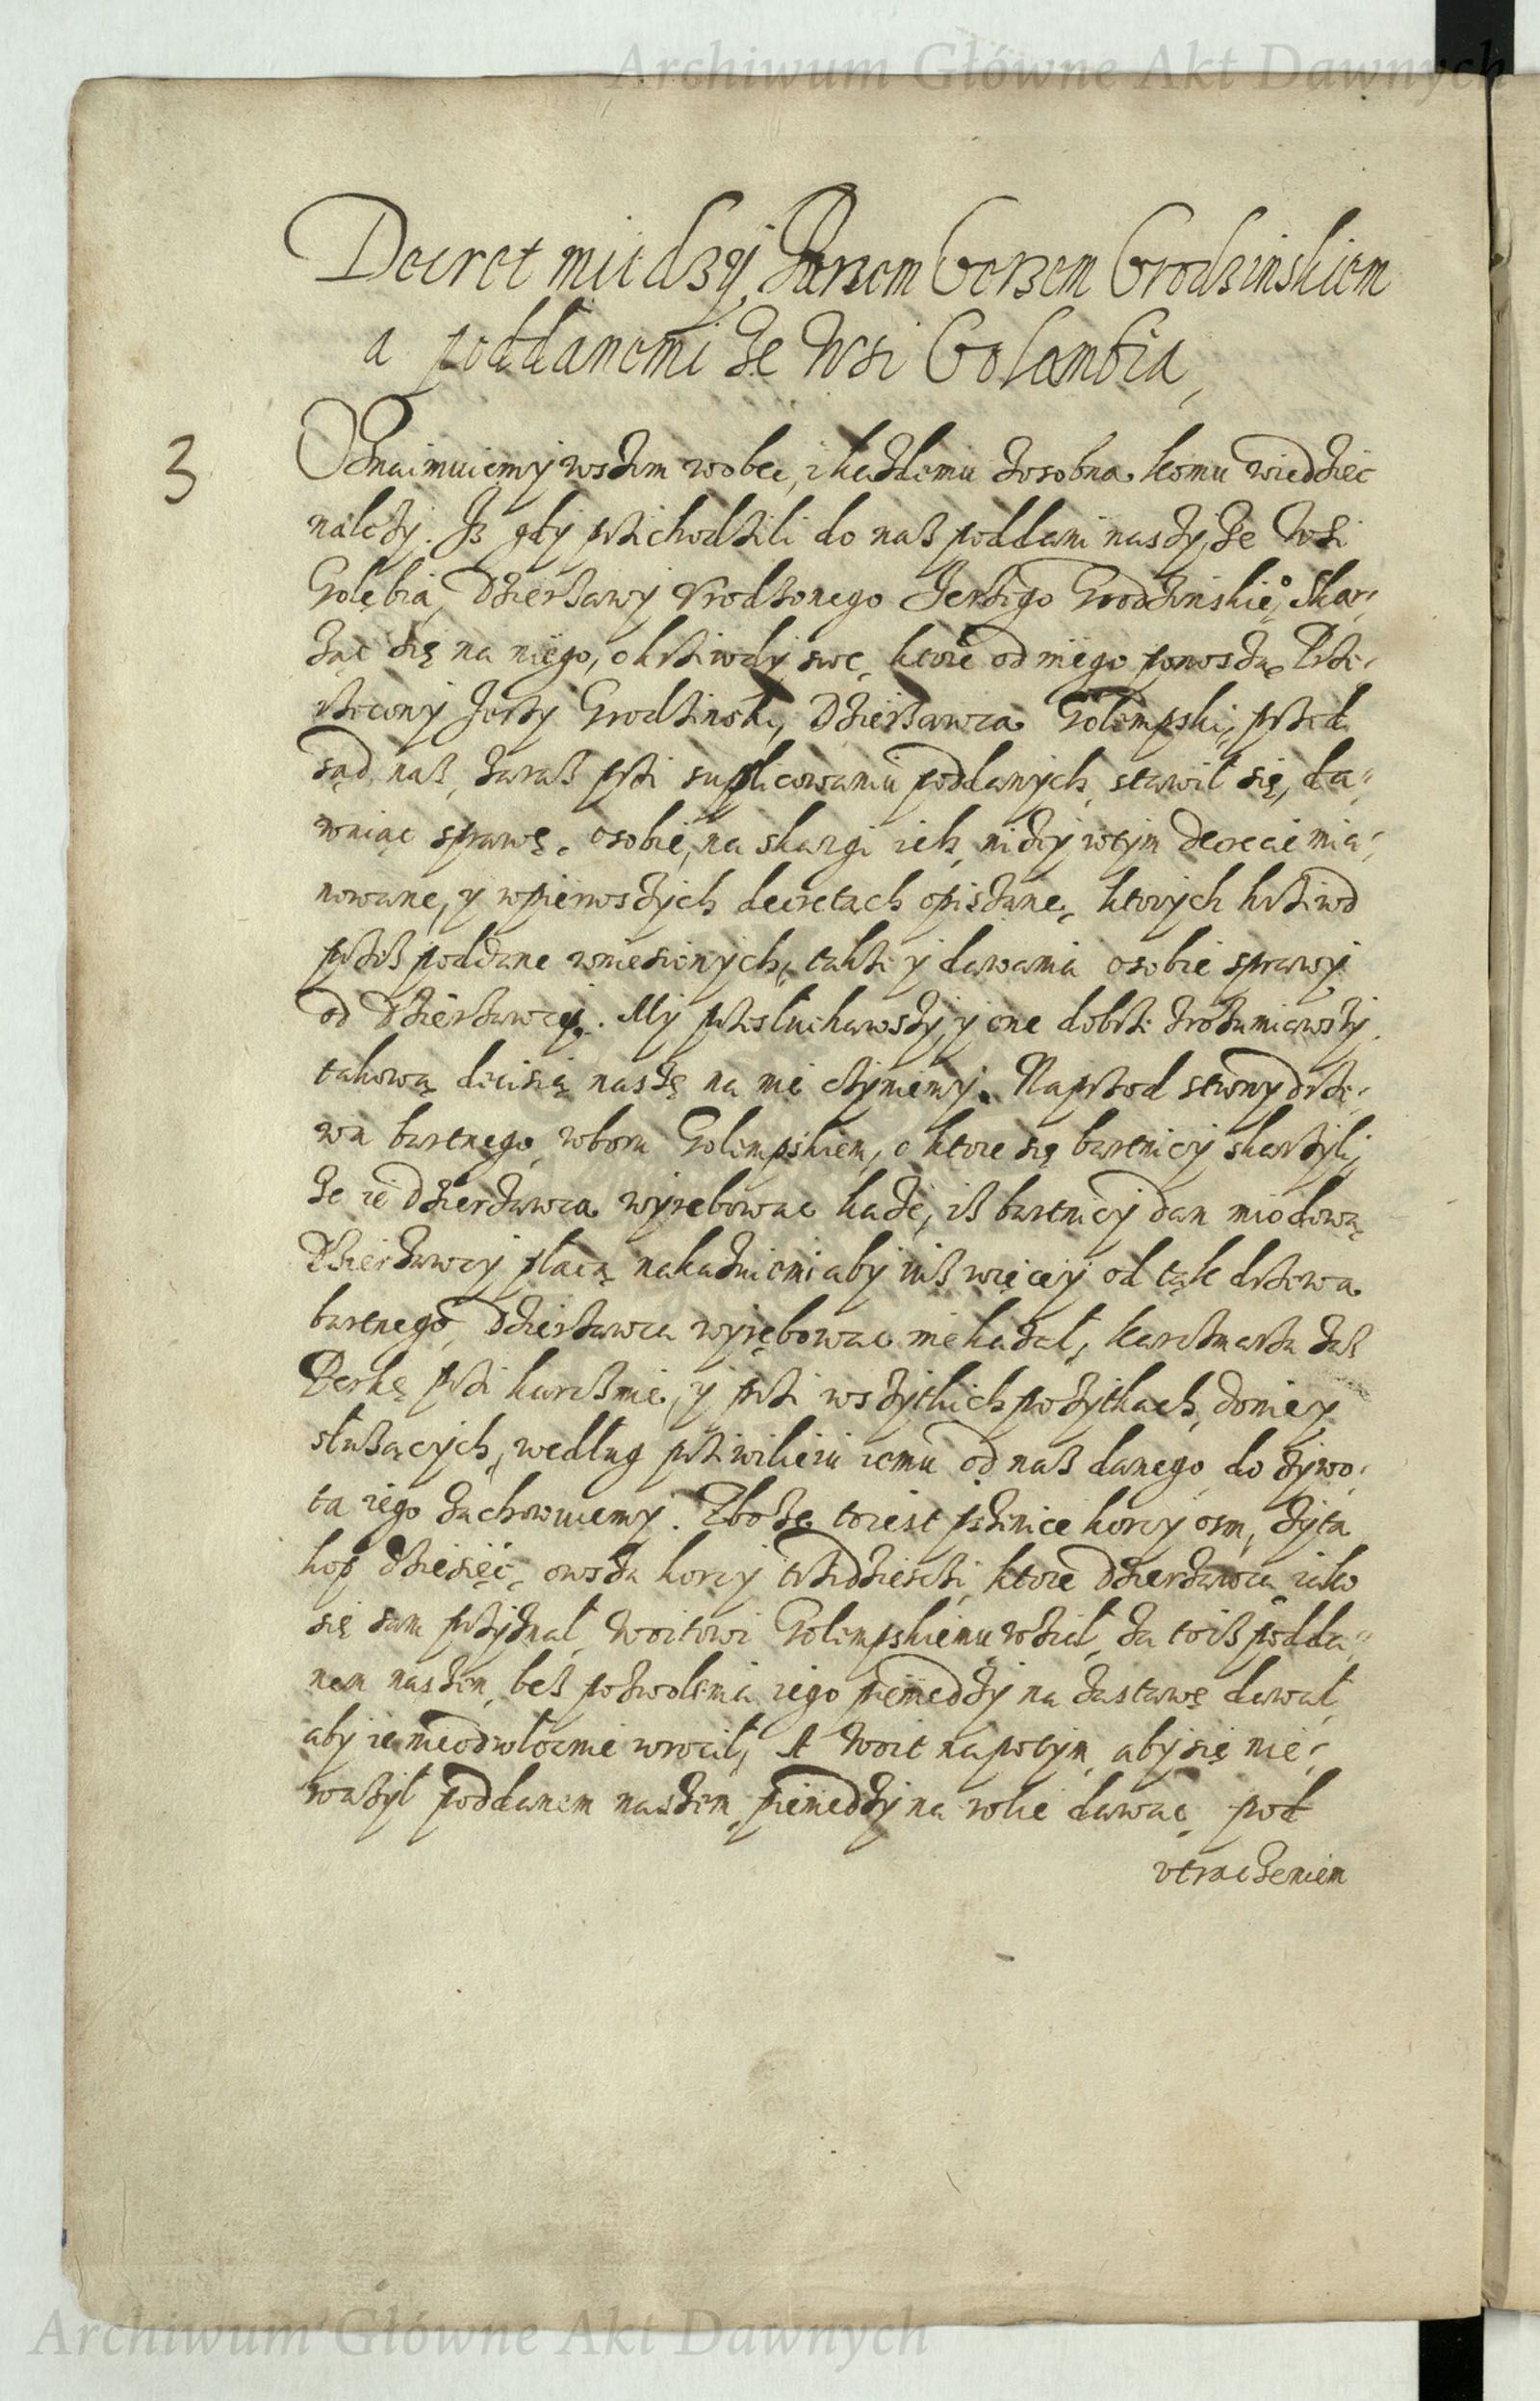 Archiwum Główne Akt Dawnych
Decret miedzy Panem Gerzem Grodzinskiem
a poddanemi ze Wsi Golambia
3
Oznaimuiemy wszem wobec, i każdemu zosobna komu wiedzieć
należy. Iż gdy przichodzili do nasz poddani naszy, ze Wsi
Golębia, Dzierżawy Vrodzonego Jerzigo Grodzinskie°, Skar-
żąc się na niego, o krziwdy swe, ktore od niego ponoszą. Prze-
rzeczony Jerzy Grodzinski, Dzierżawca Golempski, przed
sąd nasz, zarasz przi suplicowaniu poddanych, stawił się, da-
waiąc sprawę, o sobie, na skargi ich, niżey wtym decrecie mia-
nowane, y w pierwszych decretach opiszane, ktorych krziwd
przesz poddane wniesionych, takze y dawania o sobie sprawy
od Dzierżawcy. My przesłuchawszy, y one dobrze zrozumiawszy
takową decisią naszę na nie czyniemy. Naprzod strony drze-
wa bartnego, w boru Golempskiem, o ktore się bartnicy skarżyli,
że ie Dzierżawca wyrębować każe, isz bartnicy dan miodową
Dzierżawcy płacą nakazuiemi aby iusz więcey od tąk drzewa
bartnego, Dzierżawca wyrębować nie kazał, karczmarza zasz
Perkę przi karczmie, y przi wszytkich pożytkach, do niey
służących, według przywileiu iemu od nasz danego, do żywo-
ta iego zachowuiemy. Zboże toiest pszenice korcy osm, żyta
kop dziesięć, owsza korcy trzidziesci, ktore Dzierżawca iako
się sam przyznał, Woitowi Golempskiemu wzial, za toisz podda-
nem naszem, besz pozwolenia iego pieniedzy na zastawę dawał,
aby ie nieodwłocznie wrocił, A Woit napotym, aby się nie-
ważył poddanem naszem, pieniedzy na role dawac, pod
vtraczeniem
Archiwum Główne Akt Dawnych